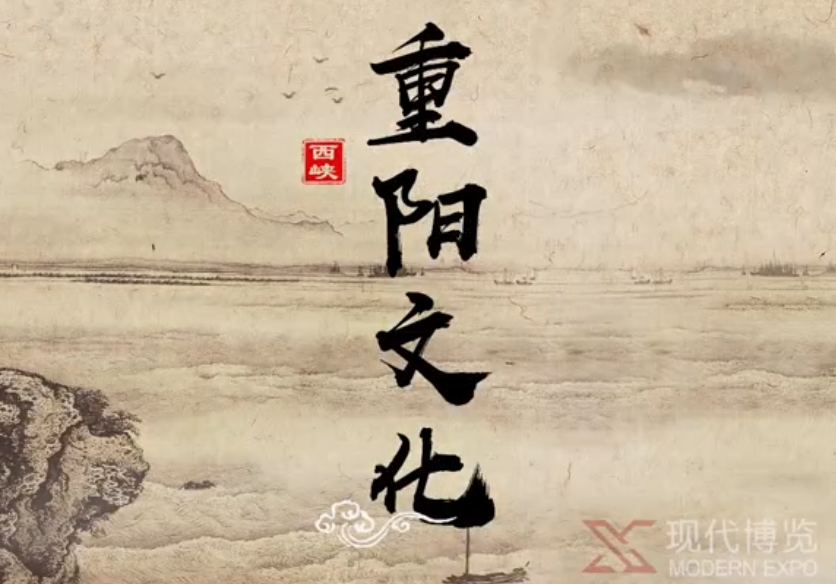 重阳文化
西峡
现代博览
MODERN EXPO